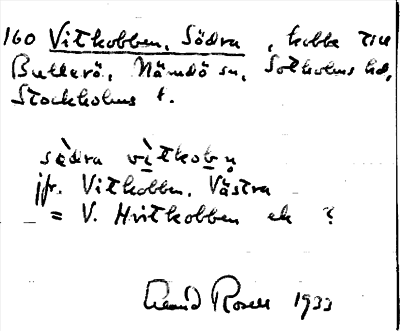 160 Vitkobben, Södra, kobbe till
Bullerö, Nämdö sn, Sotholms hd,
Stockholms l.
södra vìtkobṇ
jfr. Vitkobben, Västra
= V. Hvitkobben ek ?
Rosell 1933